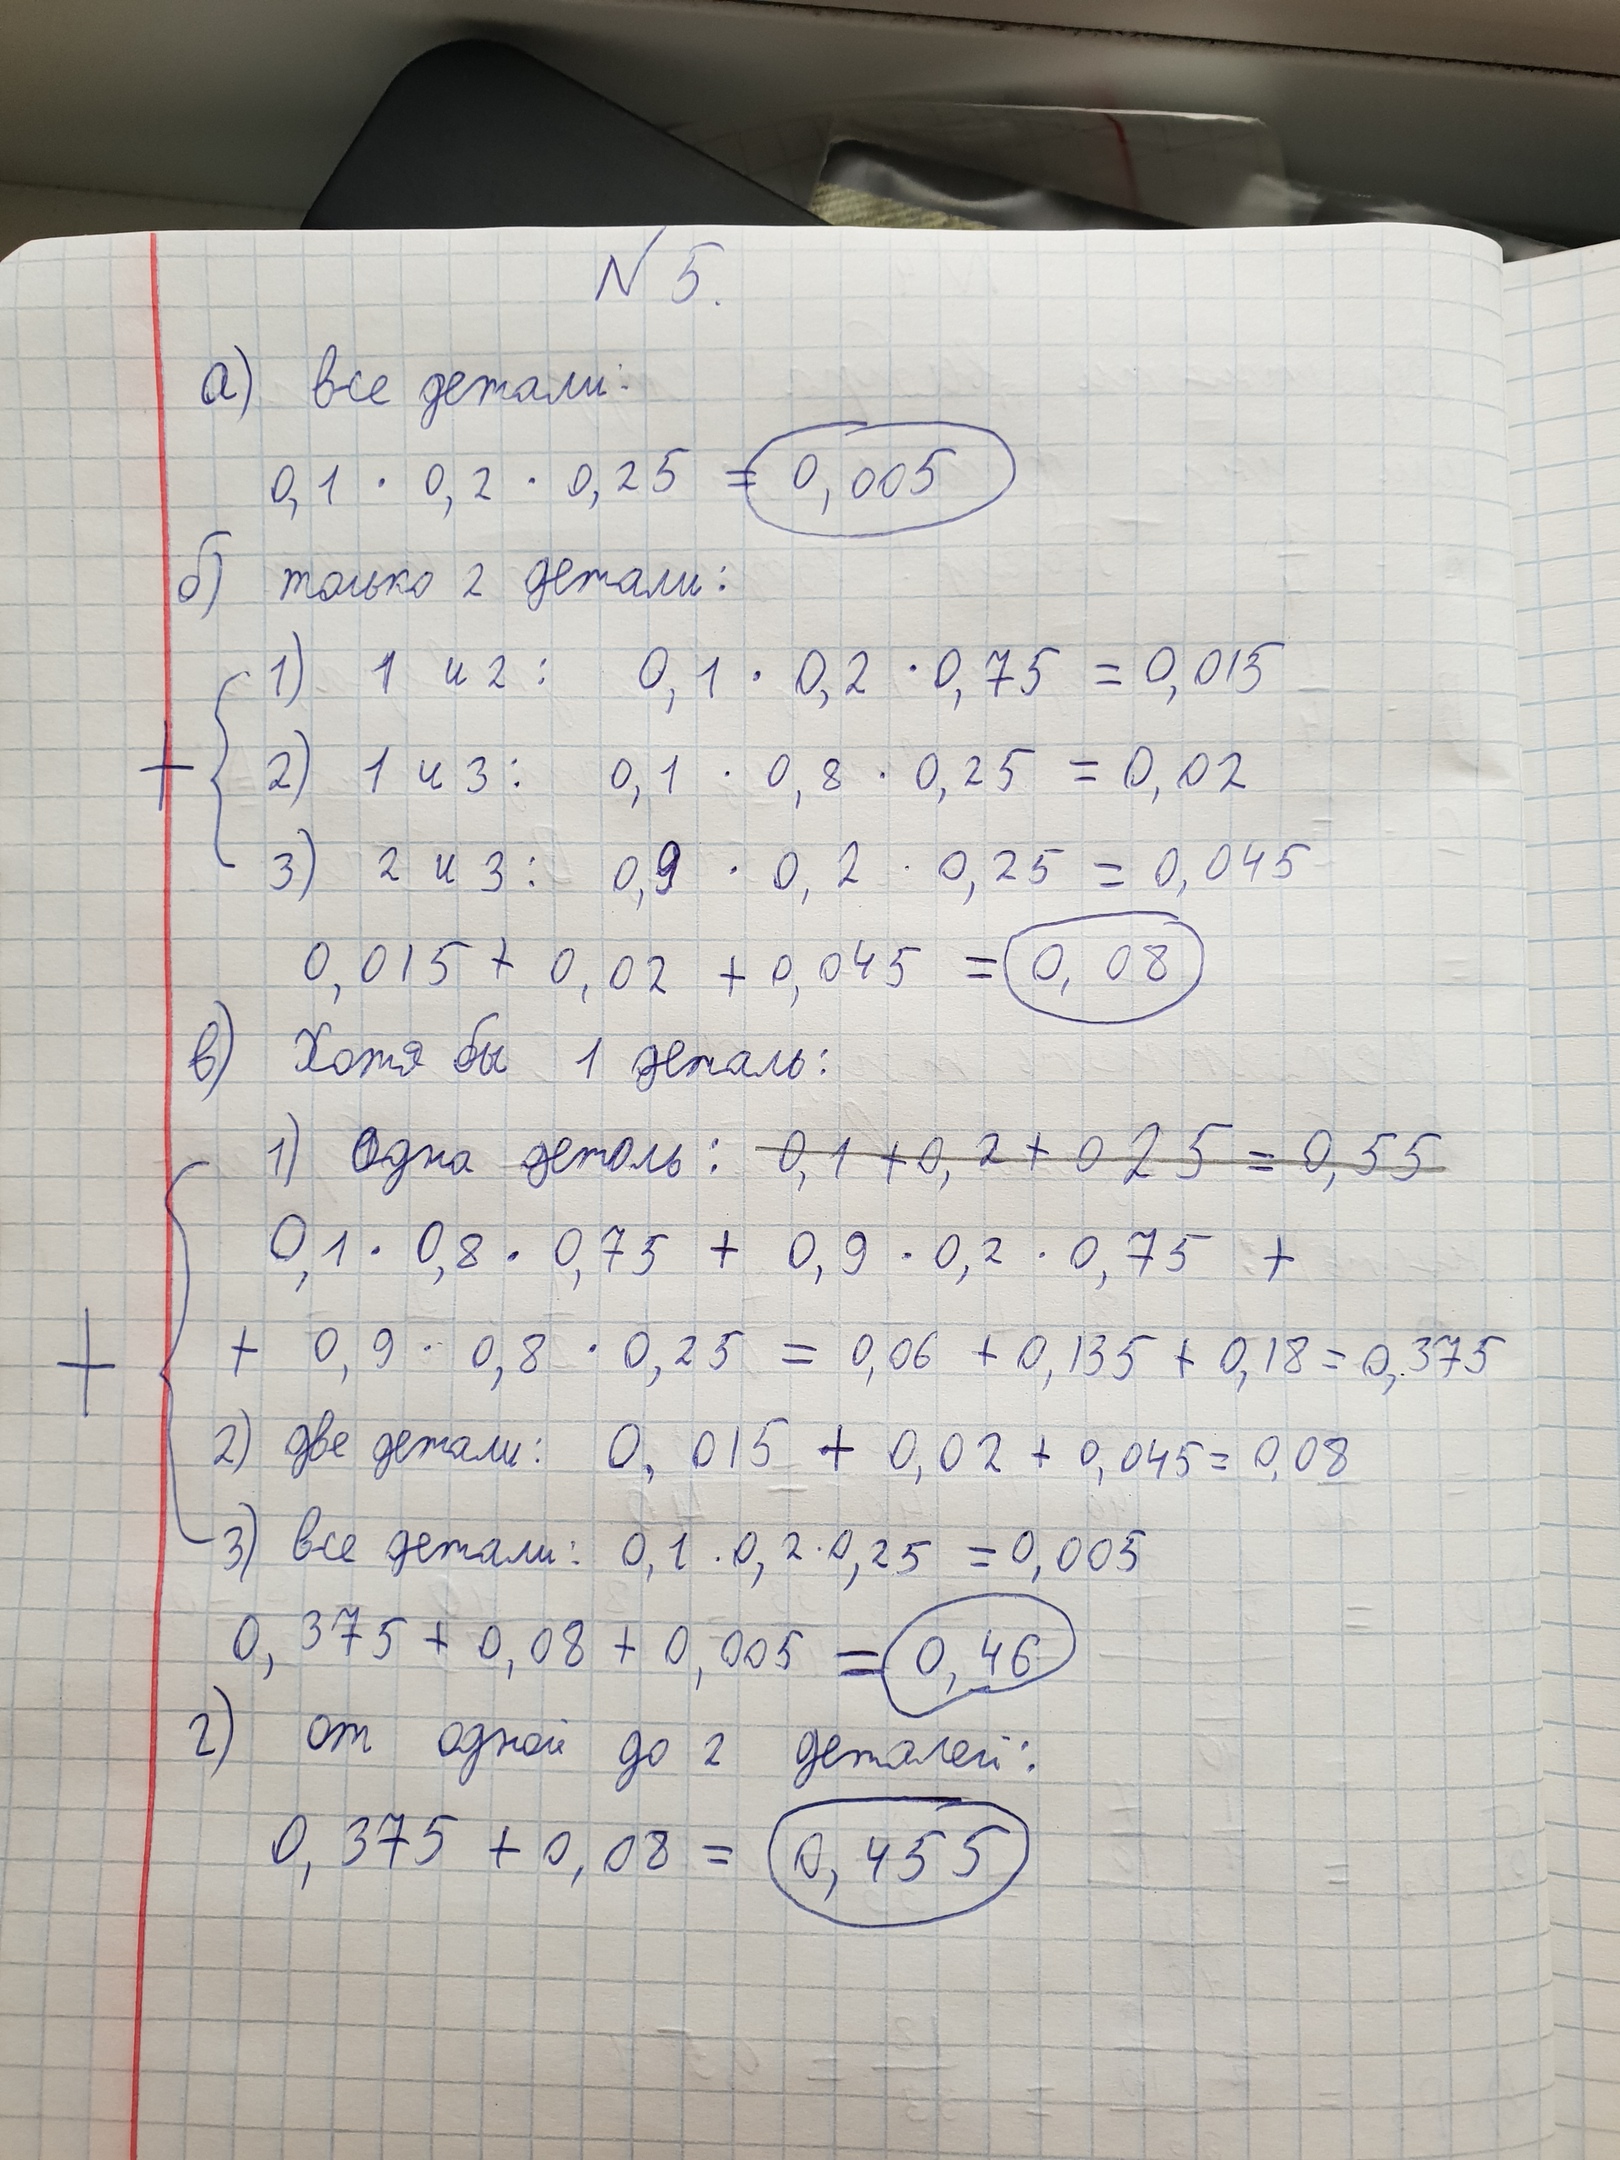 N 5.
а) все детали:
0,1 · 0,2 · 0,25 = 0,005
б) только 2 детали:
1) 1 и 2: 0,1 · 0,2 · 0,75 = 0,015
2) 1 и 3: 0,1 · 0,8 · 0,25 = 0,02
+
3) 2 и 3: 0,9 · 0,2 · 0,25 = 0,045
0,015 + 0,02 + 0,045 = 0,08
в) Хотя бы 1 деталь:
1) Одна деталь: 0,1 + 0,2 + 0 25 = 0,55
0,1 · 0,8 · 0,75 + 0,9 · 0,2 · 0,75 +
+ 0,9 · 0,8 · 0,25 = 0,06 + 0,135 + 0,18 = 0,375
+
2) две детали: 0,015 + 0,02 + 0,045 = 0,08
3) все детали: 0,1 · 0,2 · 0,25 = 0,005
0,375 + 0,08 + 0,005 = 0,46
г) от одной до 2 деталей:
0,375 + 0,08 = 0,455